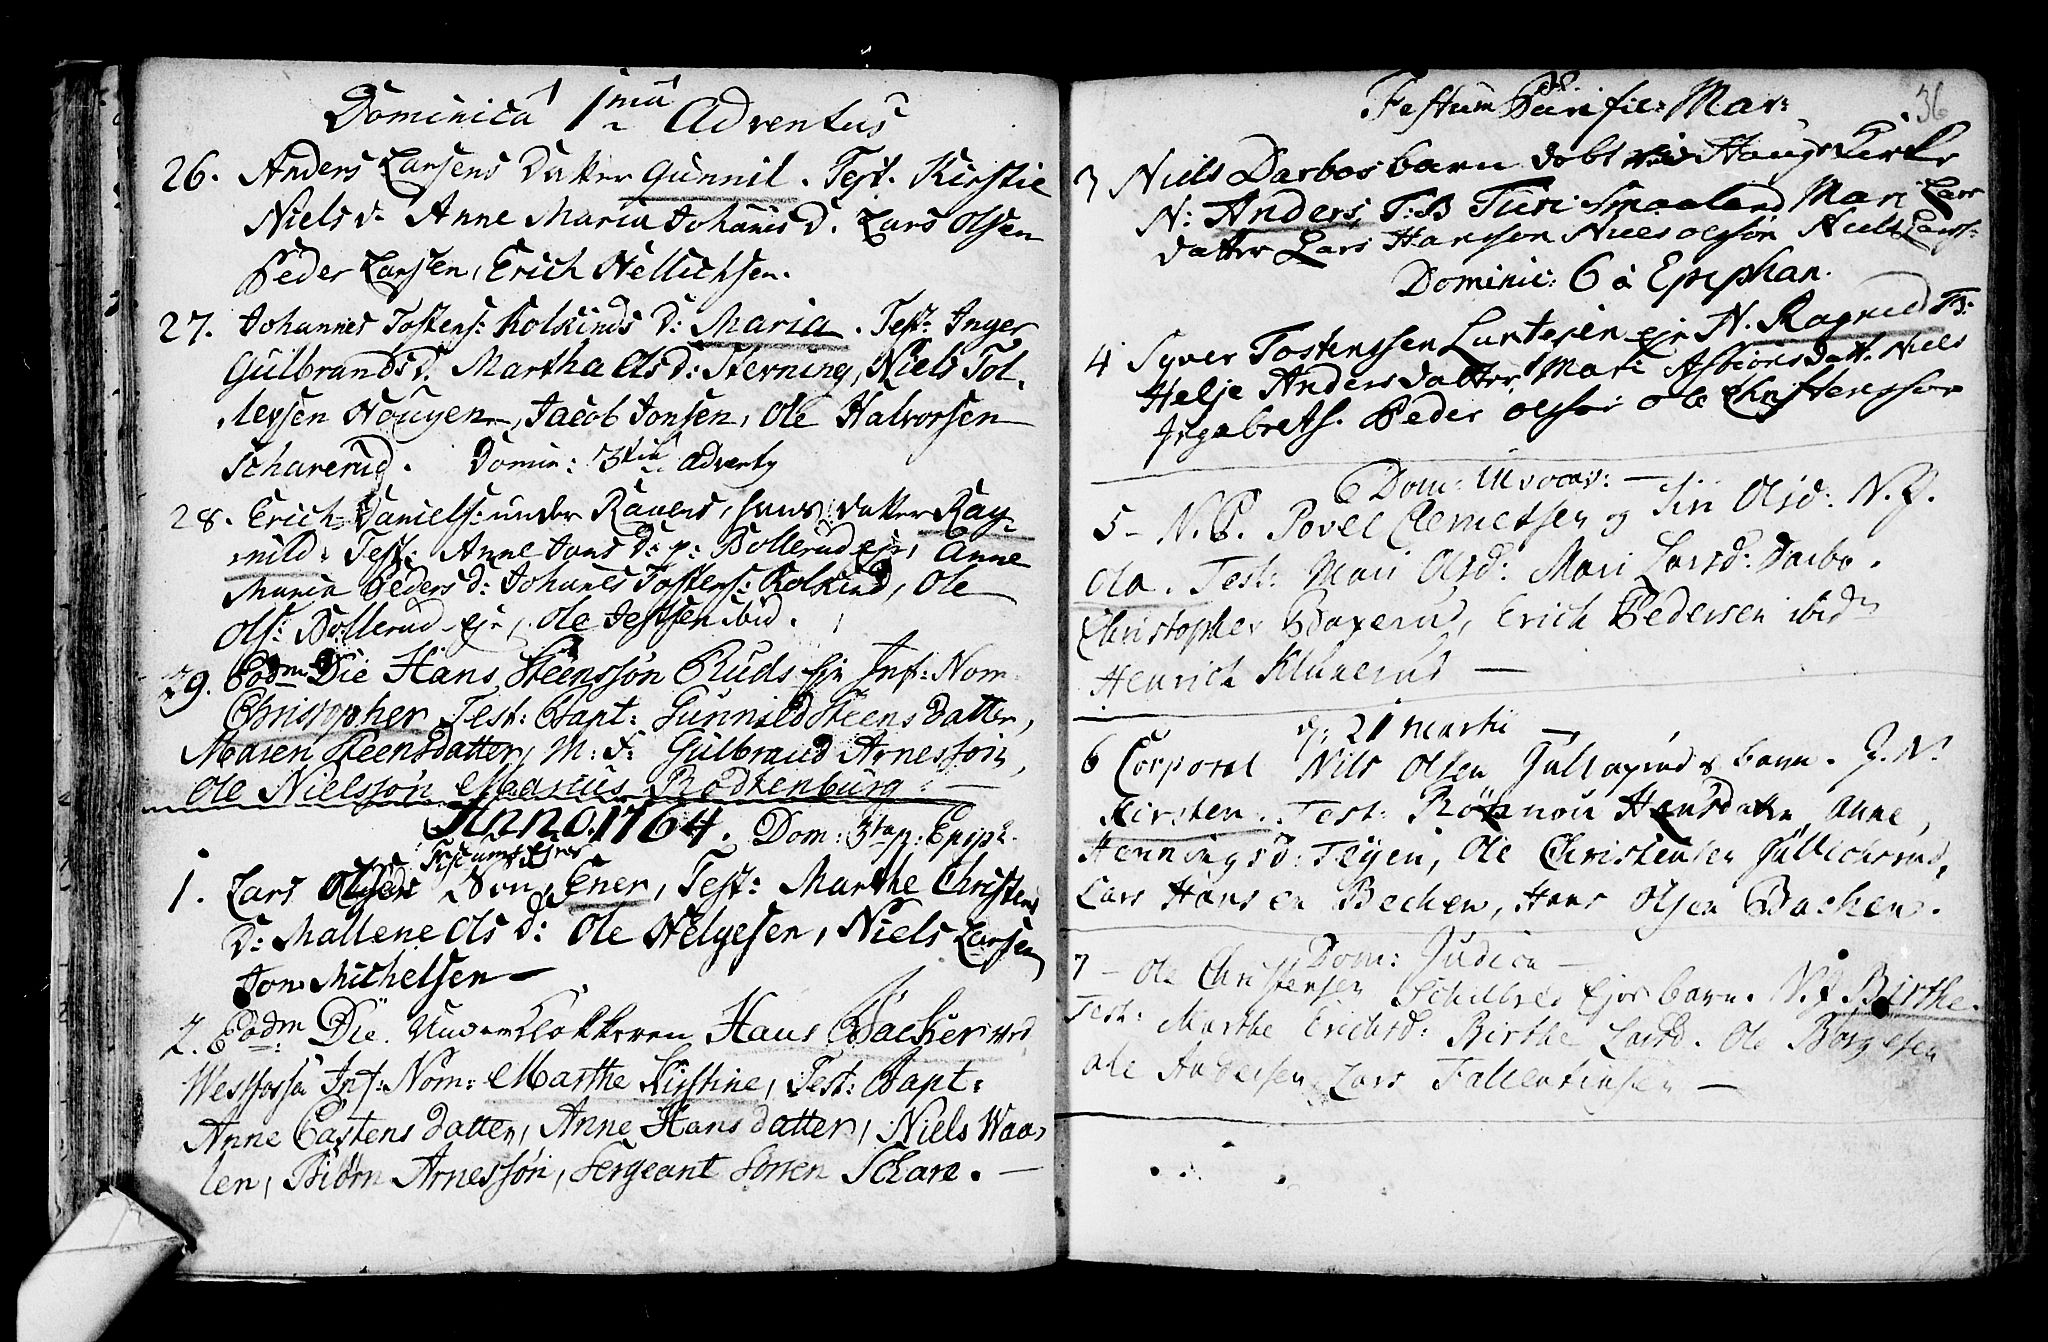 Dominica 1ma Adventus
26. Anders Larsens Datter Gunnil. Test. Kirstie
Niels d. Anne Maria Johanis d. Lars Olsen
Peder Larsen, Erich Nellichsen.
27. Johannes Tostens: Kolskinds D: Maria. Test: Inger
Gulbrandsd. Martha Olsd: Sterning, Niels Tol-
levsen Hougen, Jacob Jonsen, Ole Halvorsen
Scharerud. Domin: 3tia Adventy
28. Erich Daniels: under Raaen, hans datter Rag-
nild: Test: Anne Jans D: p: Bollerud ejr, Anne
Maria Peders d: Johanes Tostens: Kolskind, Ole
Ols: Bollerud ejr, Ole Jessen ibid.
29. Eodm Die Hans Steenssøn Ruds Ejr Inf: Nom
Christopher Test: Bapt: Gunnild Steens datter,
Maren Steensdatter, M: F: Gulbrand Arnessøn,
Ole Nielssøn Maarius Rodtenburg. —
Anno. 1764. Dom: 3ta p: Epiph.
1. Lars Olsens Søn, Ener, Test: Marthe Christens
D: Mallene Ols d: Ole Helgesen, Niels Larsen
Jon Michelsen —
2. Eodm Die. Underklokkeren Hans Backer ved
Westfossa Inf: Nom: Marthe Kirstine, Test: Bapt:
Anne Castens datter, Anne Hans datter, Niels Waa-
len, Biørn Arnessøn, Sergeant Sören Schare. —
36
Festum Purific: Mar:
3 Niels Darbos barn døbt ved Haugs Kirke
N: Anders T: B Turi Smaaland Mari Lars
datter Lars Hansøn Niels olsøn Niels Larss:
Dominic: 6 à Epiphan.
4 Syver Tostenssen Luntesen ejr N. Ragnild TB:
Helje Anders datter, Mari Asbiörisdatt. Niels
Ingebrets. Peder olsøn ole Christenssøn
Dom: Invocav: —
5 - N. P. Povel Clemetsen og Siri Olsd: N. P.
Ola. Test: Mari Olsd: Mari Larsd: Darbo.
Christopher Baxerud, Erich Pedersen ibidn
Henrich Klunerud —
d: 21 Martii —
6 Corporal Nils Olsen Jullagruds barn. J. N.
Kirsten. Test: Rönnou Hansdatter, Anne
Hennings d: Teigen, Ole Christensen Jullichsrud,
Lars Hansen Bechen, Hans Olsen Backen.
Dom: Judica —
7 - Ole Christensen Schilbred Ejes barn. N. P. Birthe.
Test: Marthe Erichsd: Birthe Larsd. Ole Børgesen
Ole Andersen Lars Fallentinsen —